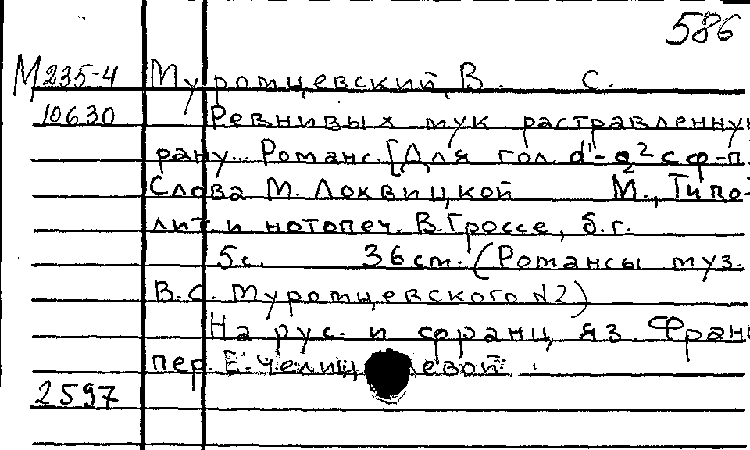 586
М 235-4 Муромцевский, В. С.
10630 Ревнивых мук растравленную
рану... Романс. [Для гол. d¹-a² с ф-п.
Слова М. Локвицкой М., Типо-
лит. и нотопеч. В. Гроссе, б.г.
5с. 36 см. (Романсы муз.
В.С. Муромцевского №2)
На рус. и франц. яз. Фран
пер. Е. Челищевой
2597